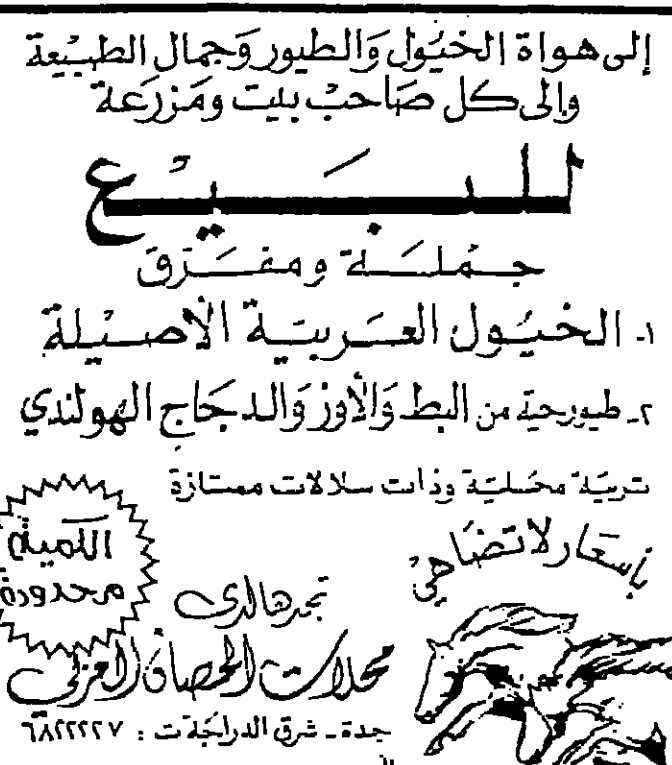 إلى هواة الخيول والطيور وجمال الطبيعة
وإلى كل صاحب بيت ومزرعة
للبيع
جملة ومفرق
١- الخيول العربية الأصيلة
٢- طيور حية من البط والأوز والدجاج الهولندي
تربية محلية وذات سلالات ممتازة
بأسعار لا تضاهى
الكمية
محدودة
تجدها لدى
محلات الحصان العربي
جدة - شرق الدراجة ت : ٦٨٢٢٢٢٧